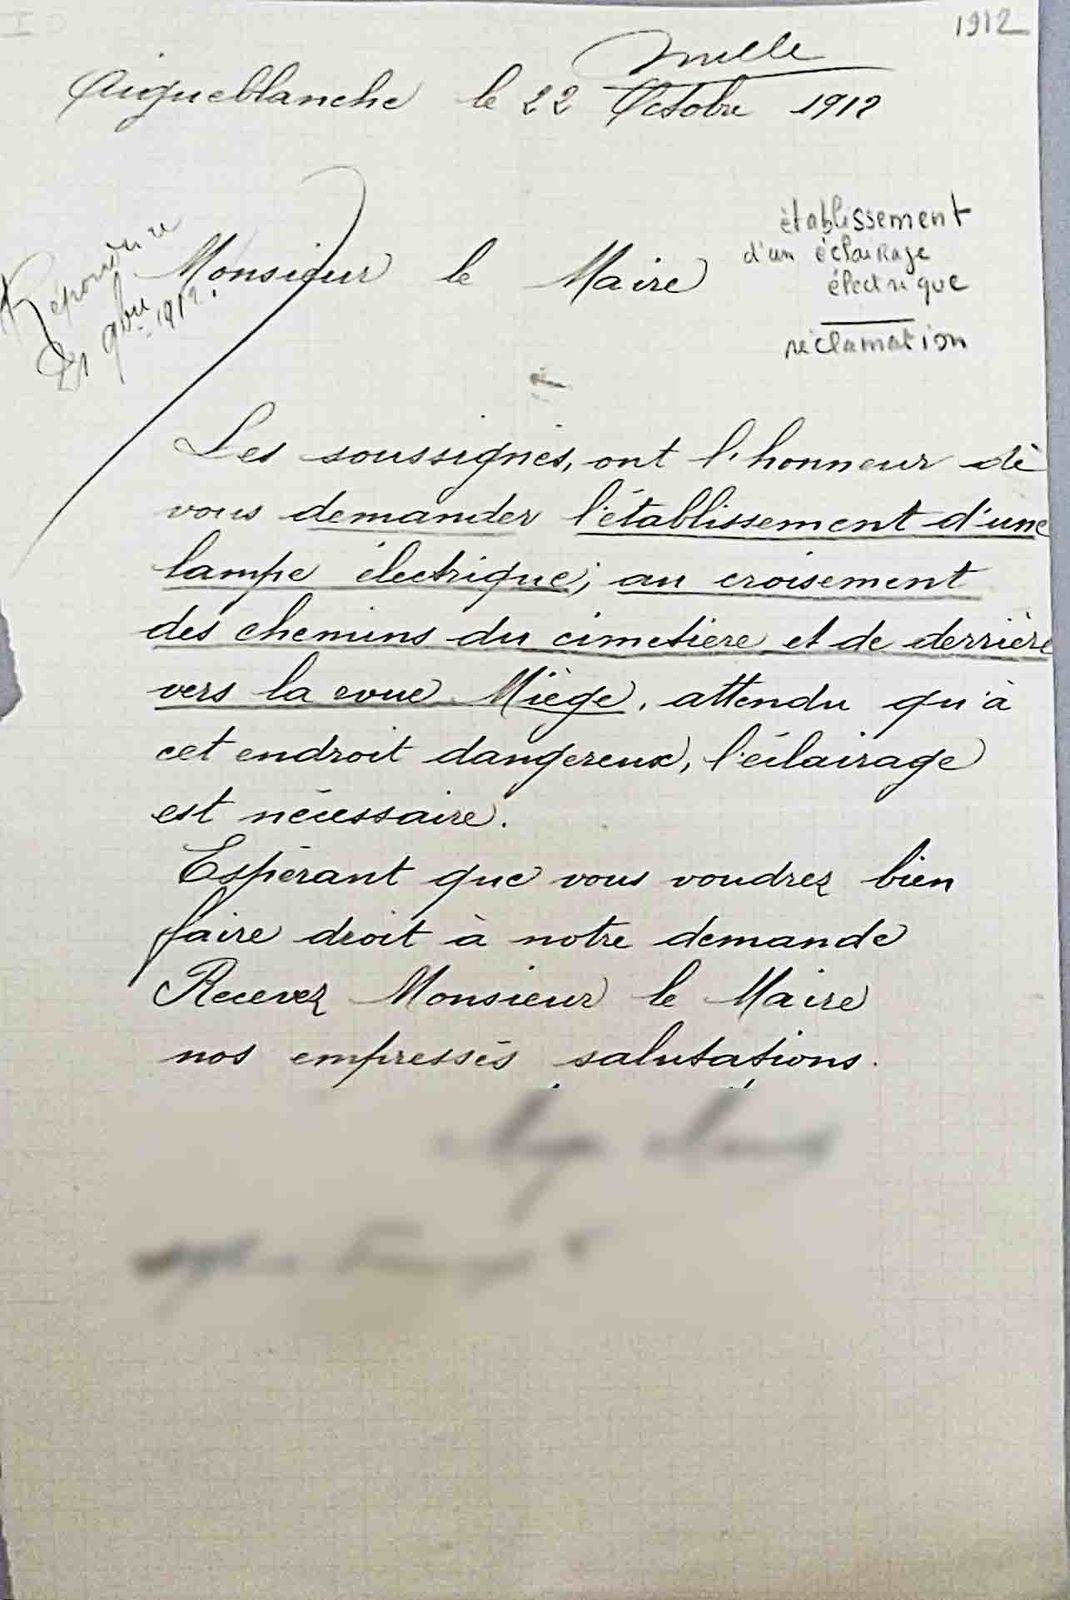 1912
Mille
Aigueblanche le 22 Octobre 1912
établissement
d'un éclairage
électrique
réclamation
Répondu le
9bre 1912.
Monsieur le Maire
Les soussignés, ont l'honneur de
vous demander l'établissement d'une
lampe électrique; au croisement
des chemins du cimetière et de derrière
vers la rue Miège, attendu qu'à
cet endroit dangereux, l'éclairage
est nécessaire.
Espérant que vous voudrez bien
faire droit à notre demande
Recevez Monsieur le Maire
nos empressés salutations.